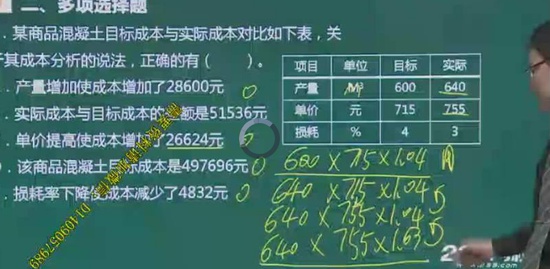 二、多项选择题
某商品混凝土目标成本与实际成本对比如下表，关
其成本分析的说法，正确的有（ ）。
产量增加使成本增加了28600元
实际成本与目标成本的 额是51536元
单价提高使成本增加了26624元
该商品混凝土目标成本是497696元
损耗率下降使成本减少了4832元
项目 单位 目标 实际
产量 M³ 600 640
单价 元 715 755
损耗 % 4 3
600×715×1.04
640×715×1.04
640×755×1.04
640×755×1.03